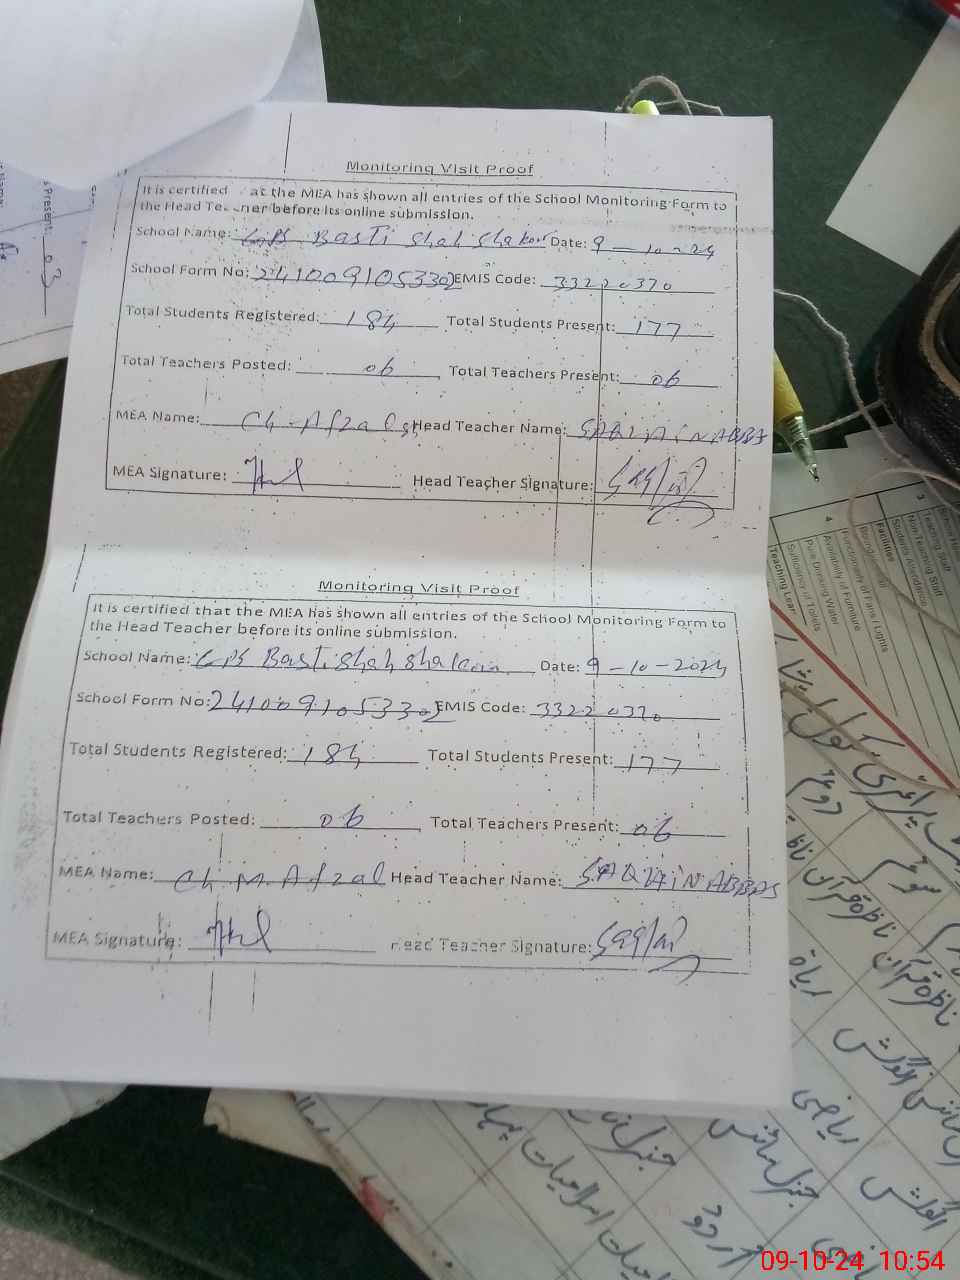 Monitoring Visit Proof
It is certified at the MEA has shown all entries of the School Monitoring Form to
the Head Te ner before its online submission.
School Name: GPS Basti Shah Shakoor Date: 9-10-24
School Form No: 241009105332 EMIS Code: 33220370
Total Students Registered: 184 Total Students Present: 177
Total Teachers Posted: 06 Total Teachers Present: 06
MEA Name: Ch-Afzal Head Teacher Name: SAQLAIN ABBA
MEA Signature: Head Teacher Signature:
Monitoring Visit Proof
It is certified that the MEA has shown all entries of the School Monitoring Form to
the Head Teacher before its online submission.
School Name: GPS Basti Shah Date: 9-10-2024
School Form No: 241009105332 EMIS Code: 33220370
Total Students Registered: 184 Total Students Present: 177
Total Teachers Posted: 06 Total Teachers Present: 06
MEA Name: Ch M. Afzal Head Teacher Name: SAQLAIN ABBAS
MEA Signature: Head Teacher Signature:
s Present: 03
3
Teaching Staff
Non-Teaching Staff
Students Attendance
Facilities
Functionality of Fans / Lights
Availability of Furniture
Pure Drinking Water
Sufficiency of Toilets
4
Teaching Lear
سوئم
دوئم
ناظرہ قرآن
ناظرہ قرآن
انگلش
ریاضی
انگلش
جنرل سائنس
اردو
اسلامیات
09-10-24 10:54